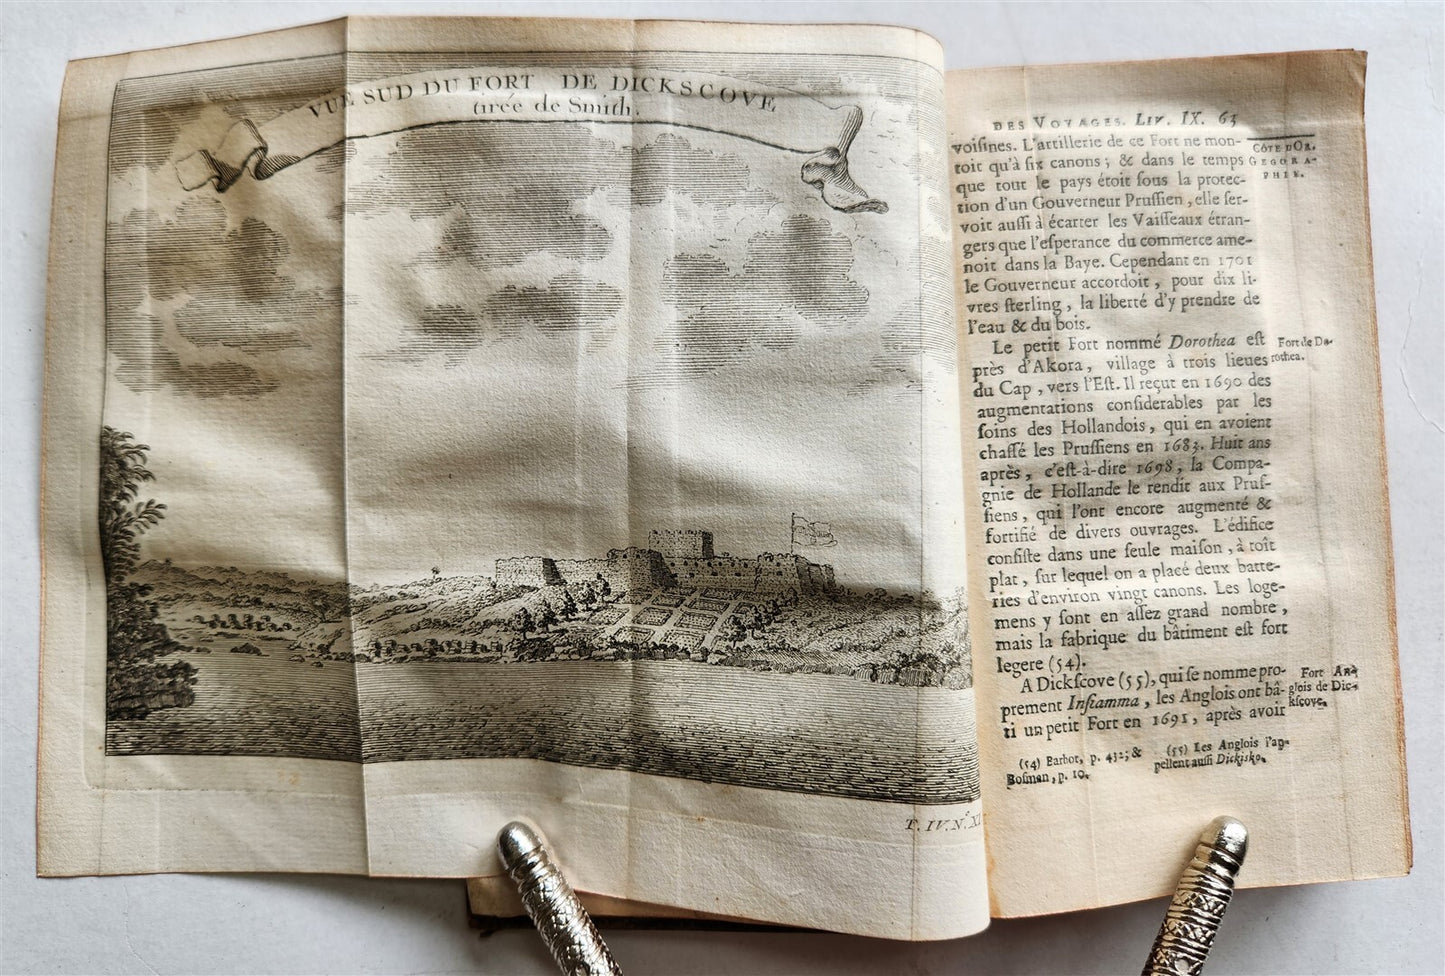 VUE SUD DU FORT DE DICKSCOVE
tirée de Smith.
T. IV. N.º XI
DES VOYAGES. LIV. IX. 63
voiſines. L'artillerie de ce Fort ne mon-
toit qu'à ſix canons ; & dans le temps
que tout le pays étoit ſous la protec-
tion d'un Gouverneur Pruſſien, elle ſer-
voit auſſi à écarter les Vaiſſeaux étran-
gers que l'eſperance du commerce ame-
noit dans la Baye. Cependant en 1701
le Gouverneur accordoit, pour dix li-
vres ſterling, la liberté d'y prendre de
l'eau & du bois.
Le petit Fort nommé Dorothea eſt
près d'Akora, village à trois lieues
du Cap, vers l'Eſt. Il reçut en 1690 des
augmentations conſiderables par les
ſoins des Hollandois, qui en avoient
chaſſé les Pruſſiens en 1683. Huit ans
après, c'eſt-à-dire 1698, la Compa-
gnie de Hollande le rendit aux Pruſ-
ſiens, qui l'ont encore augmenté &
fortifié de divers ouvrages. L'édifice
conſiſte dans une ſeule maiſon, à toît
plat, ſur lequel on a placé deux batte-
ries d'environ vingt canons. Les loge-
mens y ſont en aſſez grand nombre,
mais la fabrique du bâtiment eſt fort
legere (54).
A Dickſcove (55), qui ſe nomme pro-
prement Inſiamma, les Anglois ont bâ-
ti un petit Fort en 1691, après avoir
CÔTE D'OR.
GEOGRA-
PHIE.
Fort de Do-
rothea.
Fort An-
glois de Dic-
kſcove.
(54) Barbot, p. 432; &
Boſman, p. 10.
(55) Les Anglois l'ap-
pellent auſſi Dickiſko.